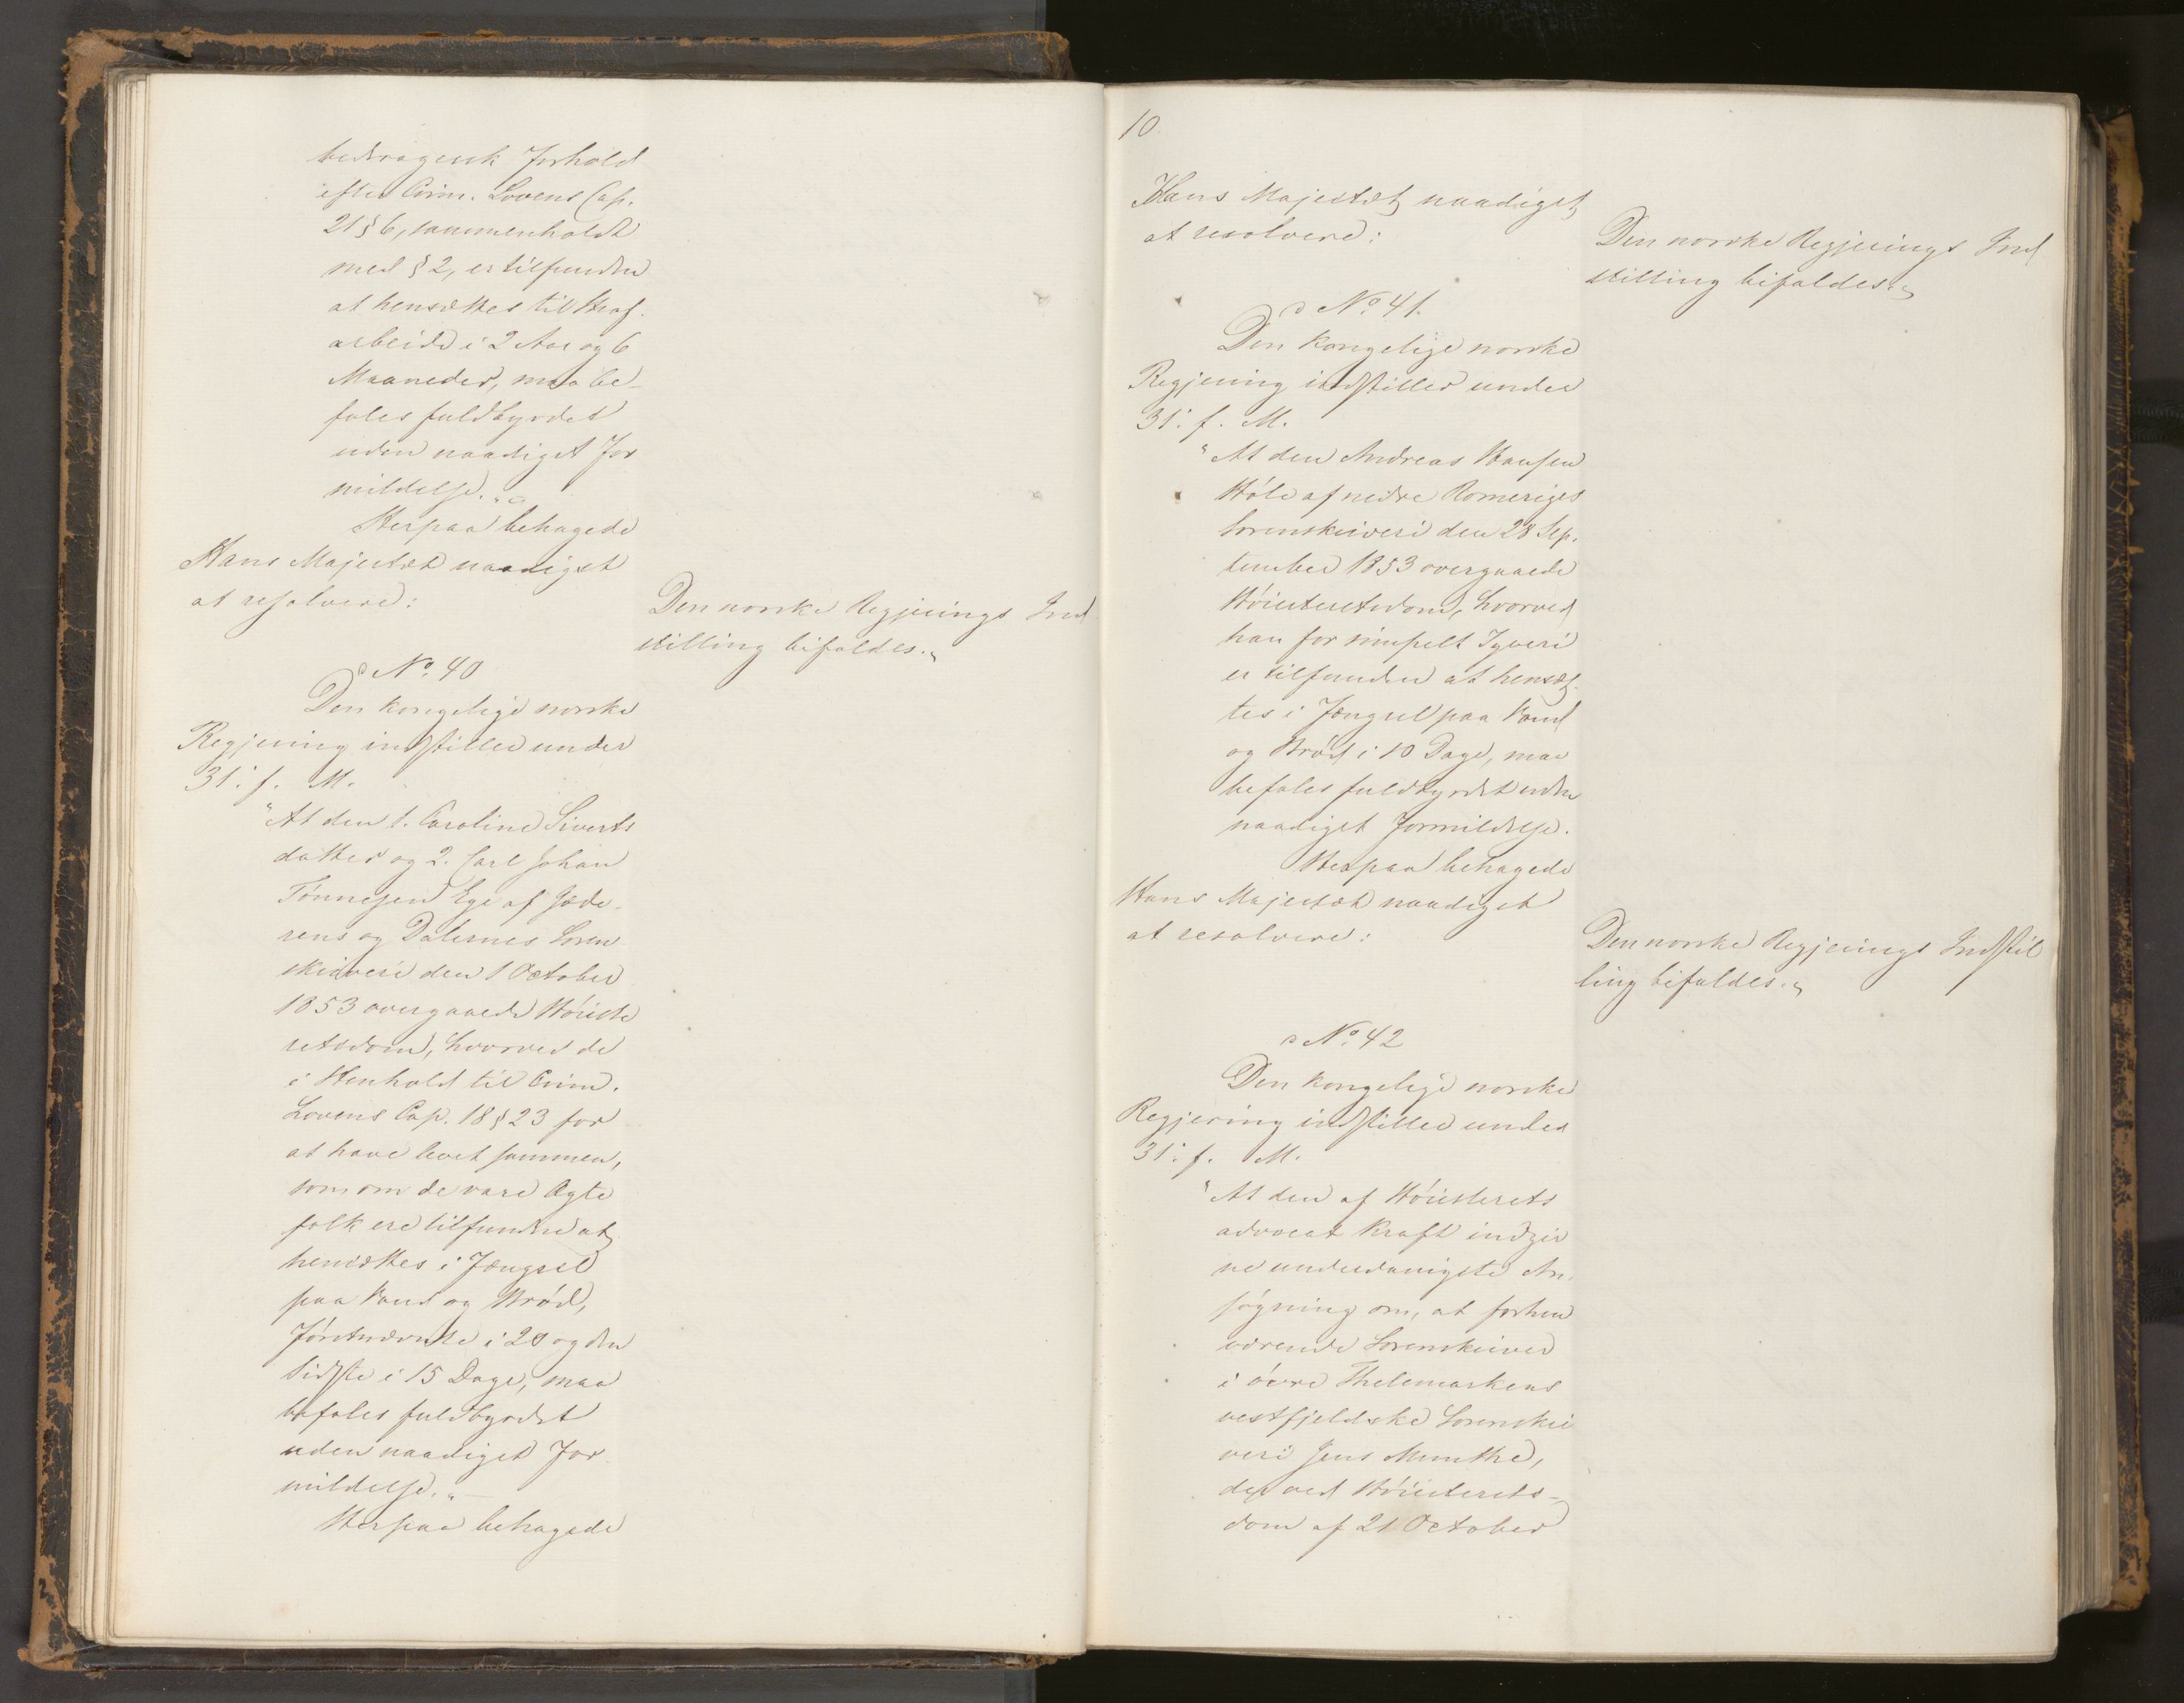 bedragersk Forhold
efter Crim. Lovens Cap.
21 § 6, sammenholdt
med § 2, er tilfunden
at hensættes til Straf-
arbeide i 2 Aar og 6
Maaneder, maa be-
fales fuldbyrdet
uden naadigst For
mildelse."
Herpaa behagede
Hans Majestæt naadigst
at resolvere:
Den norske Regjerings Ind
stilling bifaldes."
No. 40
Den kongelige norske
Regjering indstiller under
31. f. M.
"At den 1. Caroline Siverts
datter og 2. Carl Johan
Tönnesen Ege af Jæde-
rens og Dalernes Soren
skriveri den 1 October
1853 overgaaede Höieste
retsdom, hvorved de
i Henhold til Crim.
Lovens Cap. 18 § 23 for
at have levet sammen,
som om de vare Ægte
folk ere tilfundne at
hensættes i Fængsel
paa Vand og Bröd,
Förstnævnte i 20 og den
Sidste i 15 Dage, maa
befales fuldbyrdet
uden naadigst For
mildelse."
Herpaa behagede
10
Hans Majestæt naadigst
at resolvere:
Den norske Regjerings Ind
stilling bifaldes."
No. 41.
Den kongelige norske
Regjering indstiller under
31. f. M.
"At den Andreas Hansen
af nedre Romeriges
Sorenskriveri den 28 Sep-
tember 1853 overgaaede
Höiesteretsdom, hvorved
han for simpelt Tyveri
er tilfunden at hensæt-
tes i Fængsel paa Vand
og Bröd i 10 Dage, maa
befales fuldbyrdet uden
naadigst Formildelse.
Herpaa behagede
Hans Majestæt naadigst
at resolvere:
Den norske Regjerings Indstil
ling bifaldes."
No. 42
Den kongelige norske
Regjering indstiller under
31. f. M.
"At den af Höiesterets
advocat Kraft indgiv
ne underdanigste An-
sögning om, at forhen
værende Sorenskriver
i övre Thelemarkens
vestfjeldske Sorenskri
veri Jens Munthe,
der ved Höiesterets-
dom af 21 October